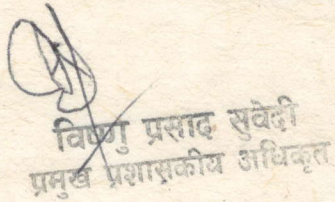 विष्णु प्रसाद सुवेदी
प्रमुख प्रशासकीय अधिकृत